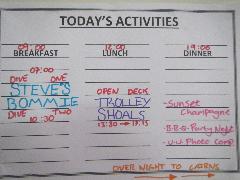 TODAY'S ACTIVITIES
09:00 12:00 19:00
BREAKFAST LUNCH DINNER
07:00
DIVE ONE
STEVE'S
BOMMIE
DIVE TWO
10:30
OPEN DECK
TROLLEY
SHOALS
13:30 → 17:15
-Sunset
Champagne
-B-B-Q-Party Night
-U-W Photo Comp
OVER NIGHT TO CAIRNS